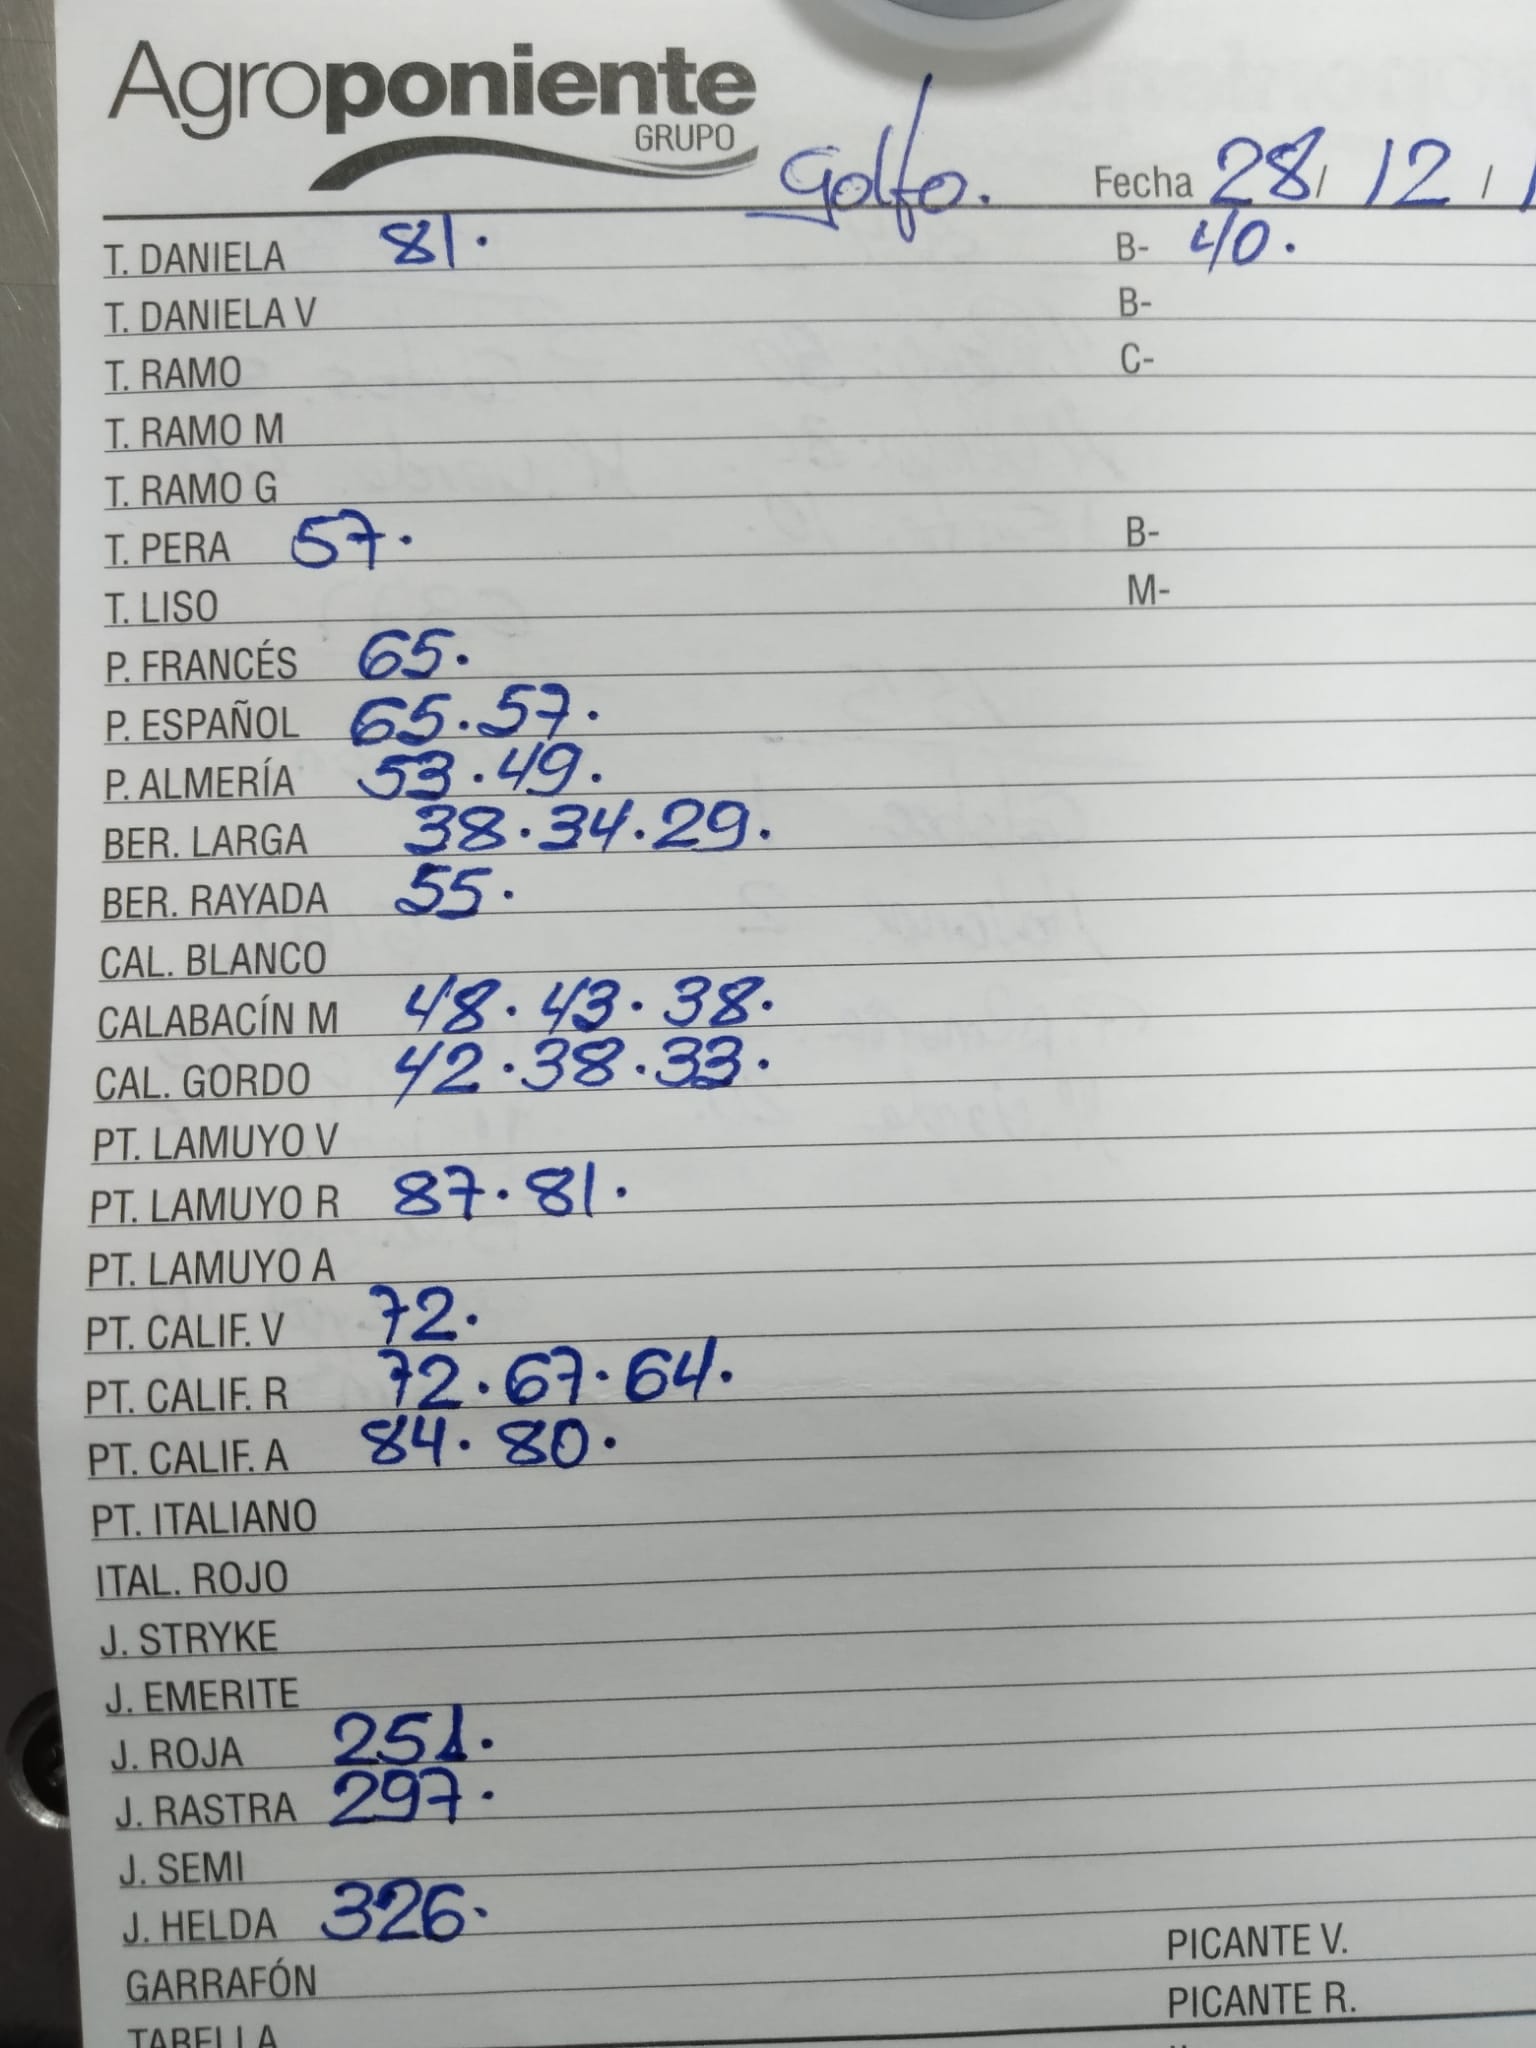 Agroponiente
GRUPO
Golfo. Fecha 28/12/1
T. DANIELA 81. B- 40.
T. DANIELA V B-
T. RAMO C-
T. RAMO M
T. RAMO G
T. PERA 57. B-
T. LISO M-
P. FRANCÉS 65.
P. ESPAÑOL 65.57.
P. ALMERÍA 53.49.
BER. LARGA 38.34.29.
BER. RAYADA 55.
CAL. BLANCO
CALABACÍN M 48.43.38.
CAL. GORDO 42.38.33.
PT. LAMUYO V
PT. LAMUYO R 87.81.
PT. LAMUYO A
PT. CALIF. V 72.
PT. CALIF. R 72.67.64.
PT. CALIF. A 84.80.
PT. ITALIANO
ITAL. ROJO
J. STRYKE
J. EMERITE
J. ROJA 251.
J. RASTRA 297.
J. SEMI
J. HELDA 326.
GARRAFÓN PICANTE V.
TABELLA PICANTE R.